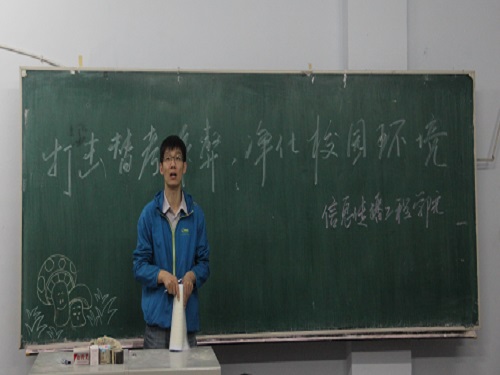 打击替考作弊，净化校园环境
信息传播工程学院